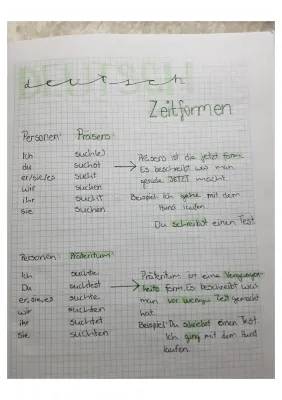 DEUTSCH
deutsch
Zeitformen
Personen: Präsens:
Ich such(e)
du suchst → Präsens ist die jetzt form.
er/sie/es sucht Es beschreibt was man
wir suchen gerade JETZT macht.
ihr sucht Beispiel: Ich gehe mit dem
sie suchen Hund laufen.
Du schreibst einen Test
Personen: Präteritum:
Ich suchte Präteritum ist eine Vergangen-
Du suchtest → heits form. Es beschreibt was
er, sie, es suchte man vor wenige Zeit gemacht
wir suchten hat.
ihr suchtet Beispiel: Du einen Test
sie suchten Ich ging mit dem Hund
laufen.